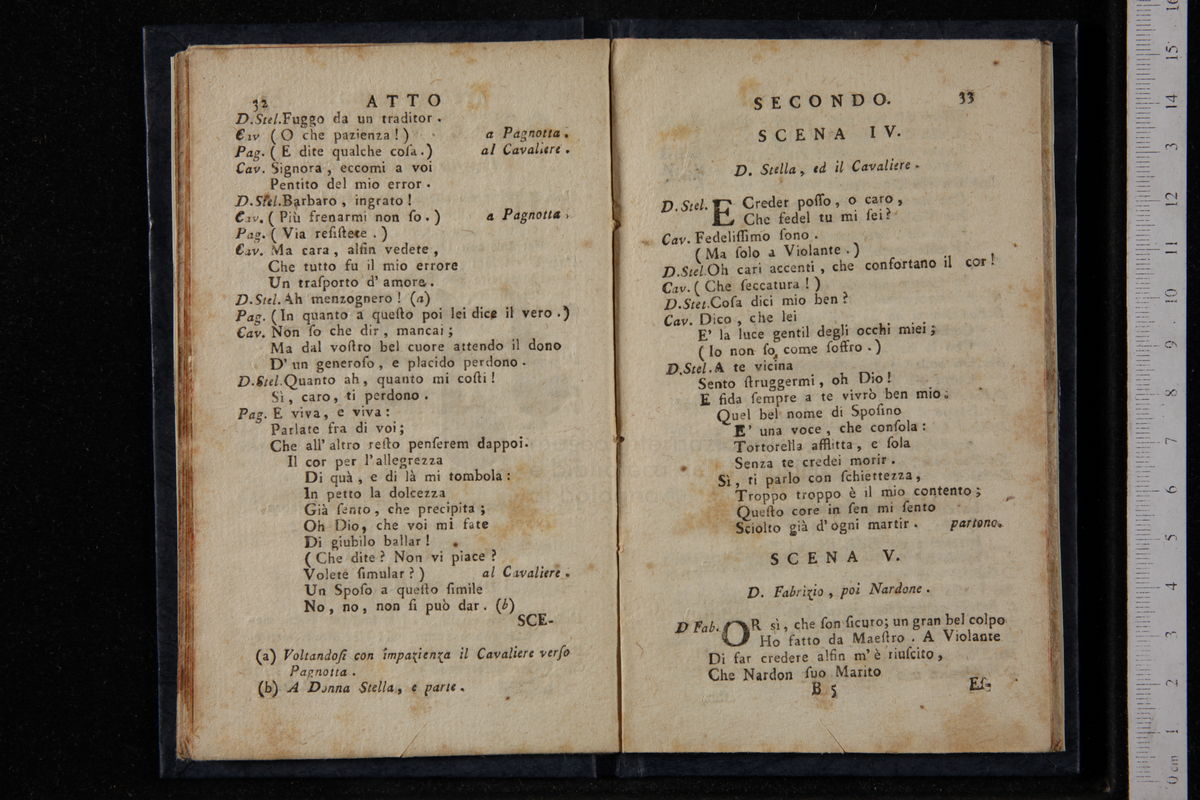 32 ATTO
D.Stel.Fuggo da un traditor .
Cav (O che pazienza!) a Pagnotta .
Pag. ( E dite qualche coſa.) al Cavaliere .
Cav. Signora , eccomi a voi
Pentito del mio error .
D.Stel.Barbaro, ingrato!
Cav. ( Più frenarmi non ſo.) a Pagnotta .
Pag. ( Via reſiſtete .)
Cav. Ma cara, alfin vedete,
Che tutto fu il mio errore
Un traſporto d'amore.
D.Stel.Ah menzognero! (a)
Pag. (In quanto a queſto poi lei dice il vero.)
Cav. Non ſo che dir, mancai;
Ma dal voſtro bel cuore attendo il dono
D'un generoſo, e placido perdono.
D.Stel.Quanto ah, quanto mi coſti!
Sì, caro, ti perdono.
Pag. E viva, e viva:
Parlate fra di voi;
Che all'altro reſto penſerem dappoi.
Il cor per l'allegrezza
Di quà, e di là mi tombola:
In petto la dolcezza
Già ſento, che precipita;
Oh Dio, che voi mi fate
Di giubilo ballar!
(Che dite? Non vi piace?
Volete ſimular?) al Cavaliere.
Un Spoſo a queſto ſimile
No, no, non ſi può dar. (b)
SCE-
(a) Voltandoſi con impazienza il Cavaliere verſo
Pagnotta.
(b) A Donna Stella, e parte.
SECONDO. 33
SCENA IV.
D. Stella, ed il Cavaliere.
D.Stel. E Creder poſſo, o caro,
Che fedel tu mi ſei?
Cav. Fedeliſſimo ſono.
(Ma ſolo a Violante.)
D.Stel.Oh cari accenti, che confortano il cor!
Cav. (Che ſeccatura!)
D.Stel.Coſa dici mio ben?
Cav. Dico, che lei
E' la luce gentil degli occhi miei;
(Io non ſo come ſoffro.)
D.Stel.A te vicina
Sento ſtruggermi, oh Dio!
E fida ſempre a te vivrò ben mio.
Quel bel nome di Spoſino
E' una voce, che conſola:
Tortorella afflitta, e ſola
Senza te credei morir.
Sì, ti parlo con ſchiettezza,
Troppo troppo è il mio contento;
Queſto core in ſen mi ſento
Sciolto già d'ogni martir. partono.
SCENA V.
D. Fabrizio, poi Nardone.
D Fab. OR sì, che ſon ſicuro; un gran bel colpo
Ho fatto da Maeſtro. A Violante
Di far credere alfin m'è riuſcito,
Che Nardon ſuo Marito
B 5 Eſ-
0 cm 1 2 3 4 5 6 7 8 9 10 11 12 13 14 15 16